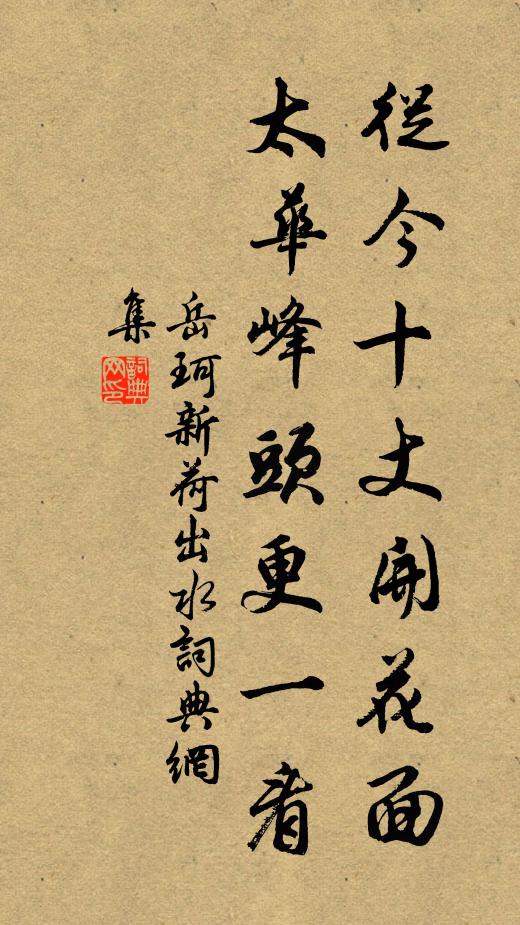 從今十丈開花面
太華峰頭更一看
岳珂新荷出水詞典網
集
詞典
网印